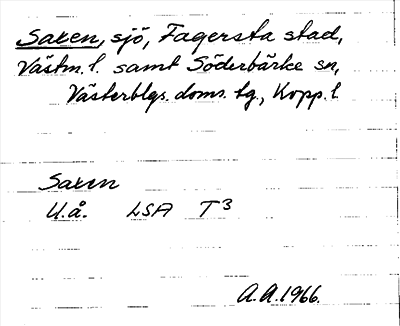 Saxen, sjö, Fagersta stad,
Västm. l. samt Söderbärke sn,
Västerbgs. doms. tg., Kopp. l.
Saxen
U.å. LSA T3
A.A. 1966.